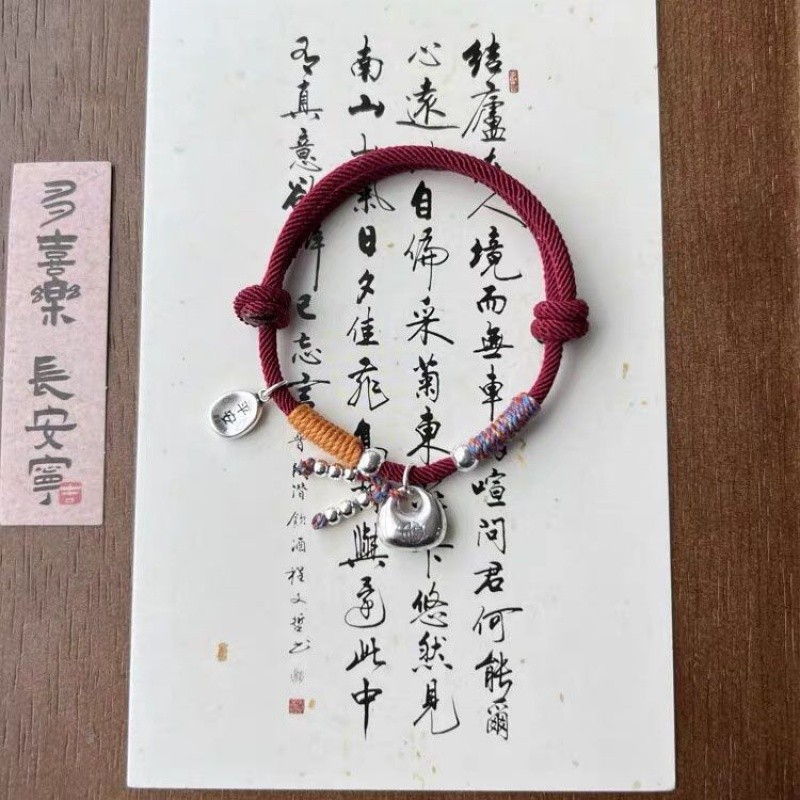 結廬在人境而無車喧問君何能爾
心遠自偏采菊東下悠然見
南山山氣日夕佳飛鳥與還此中
有真意欲辨已忘言
晉陶潛飲酒程文哲书
多喜樂 長安寧
吉
平安